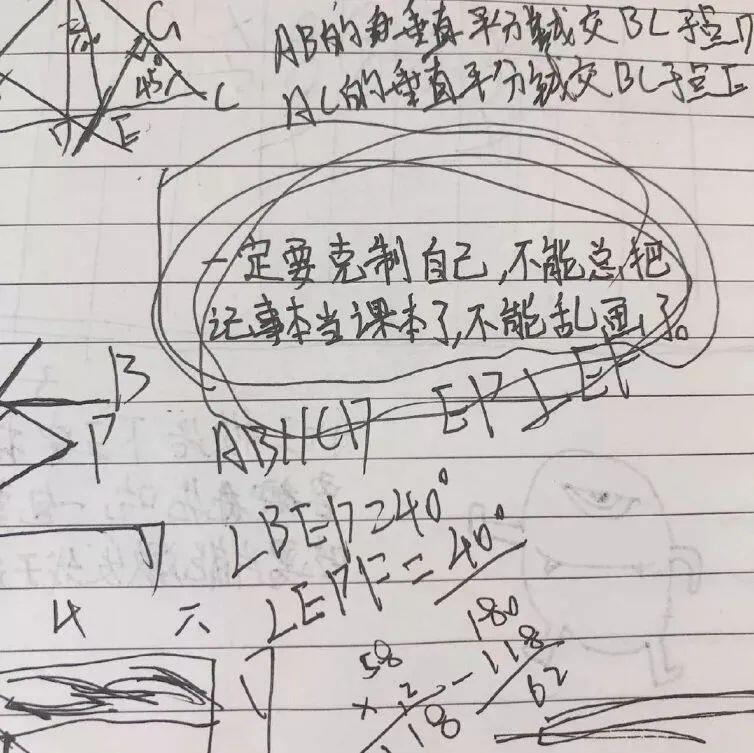 G
45°
C
D E
AB的垂直平分线交BC于点D
AC的垂直平分线交BC于点E
一定要克制自己,不能总把
记事本当课本了,不能乱画了。
B
AB∥CD EP⊥EF
P
∠BEP=40°
∠EPF=40°
4 六
58
×2
118
180
-118
62